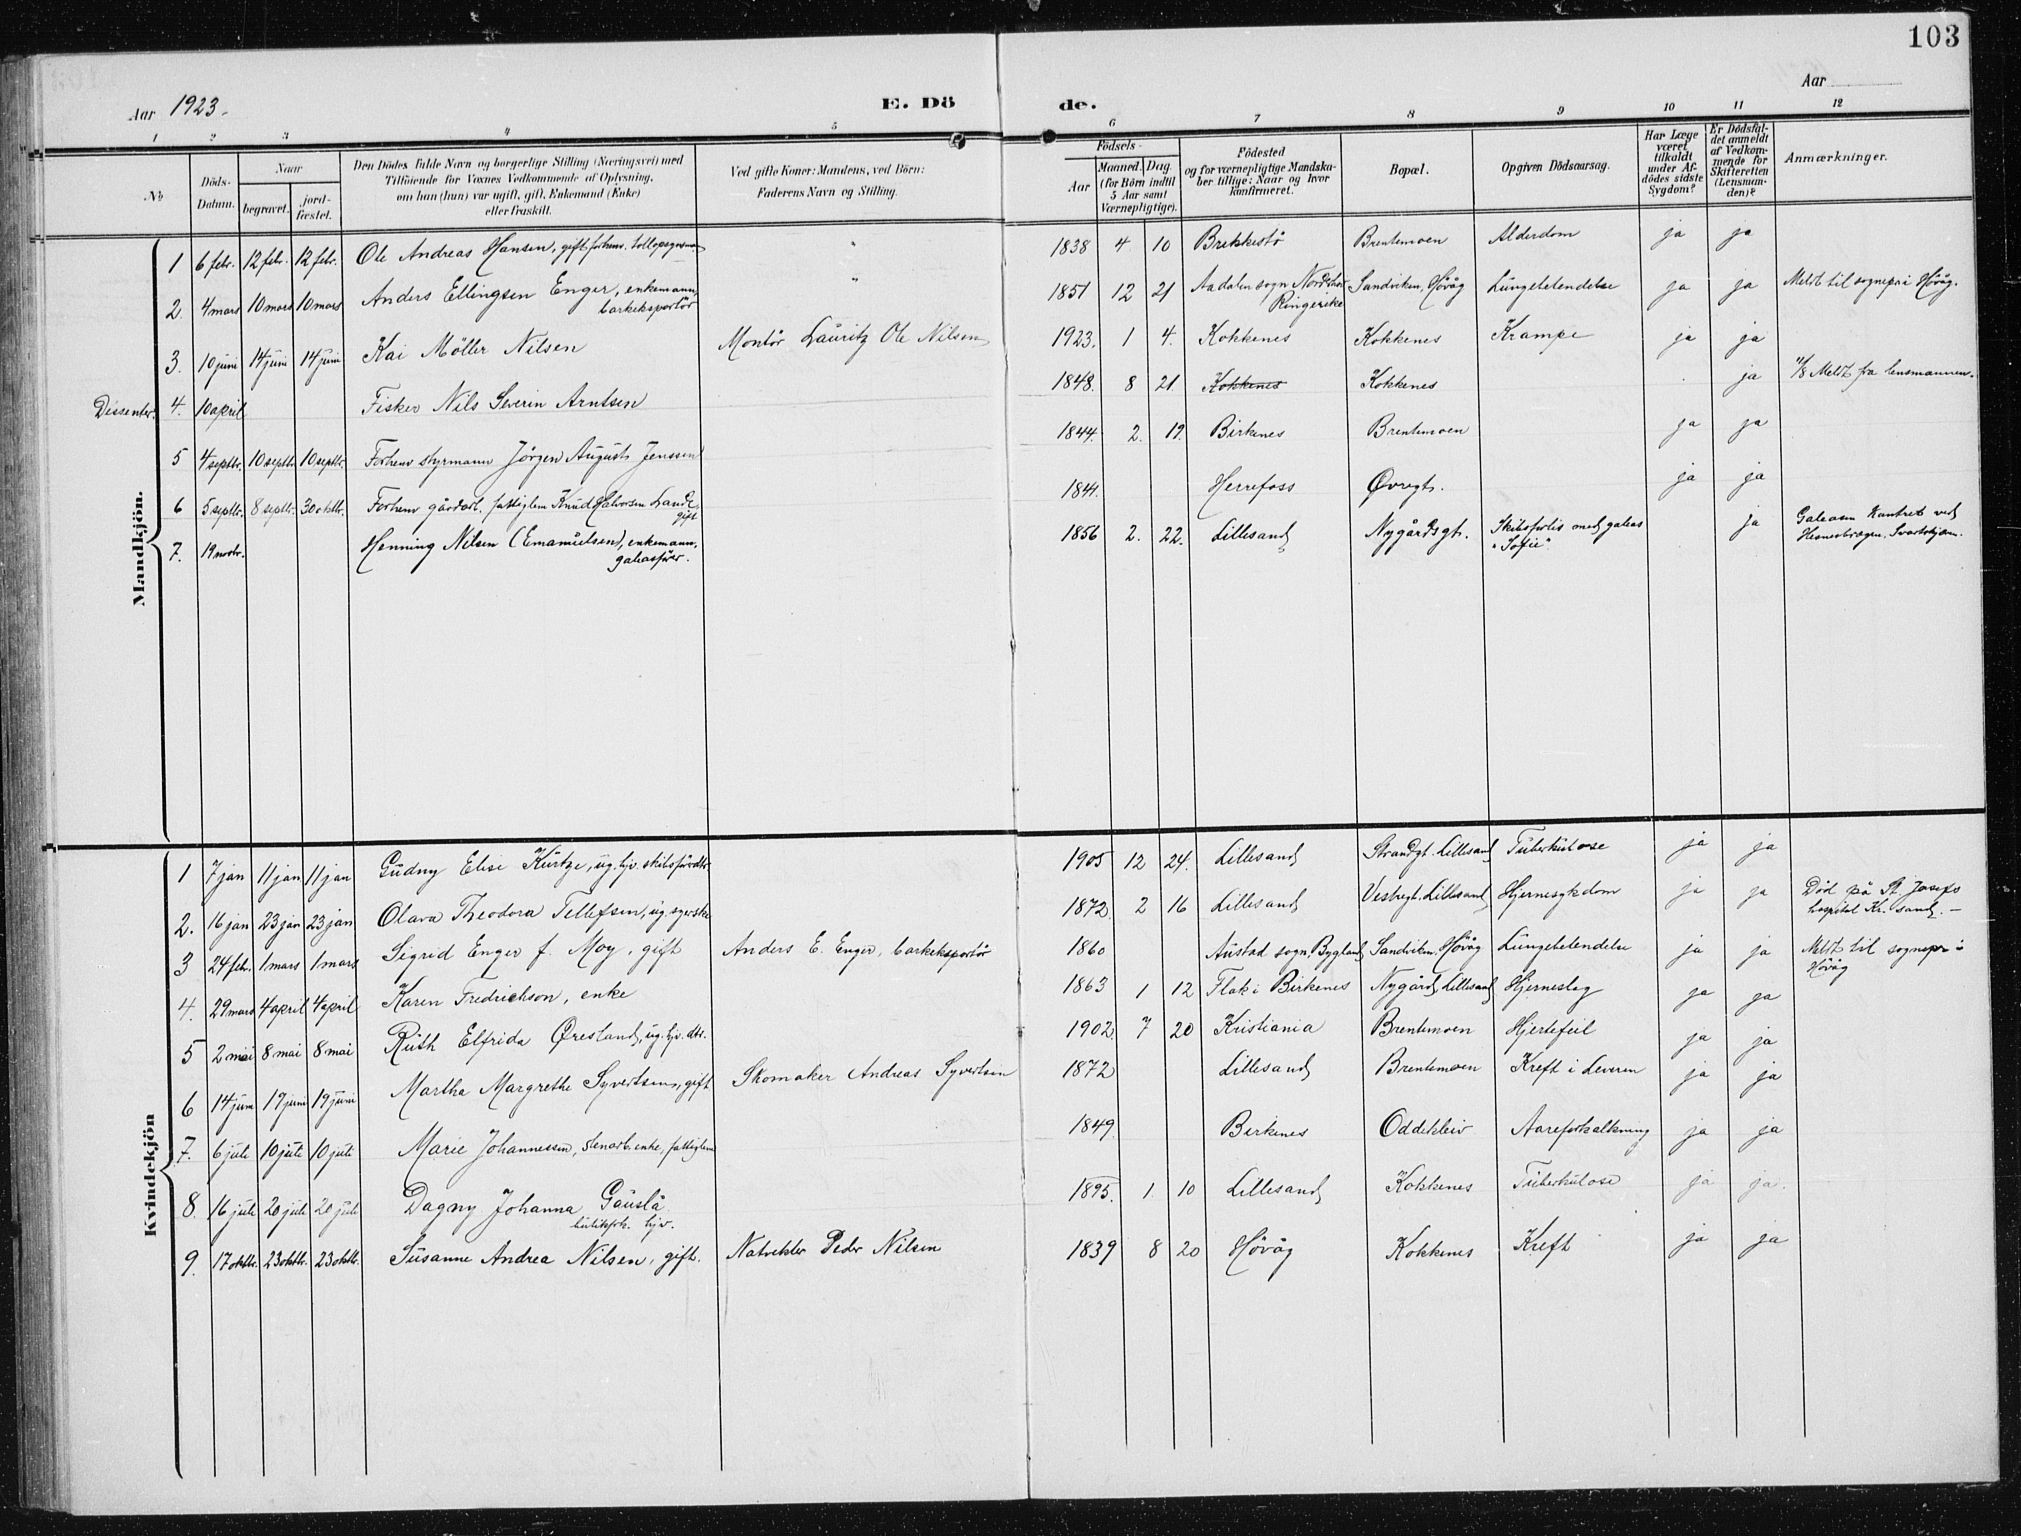 103
Aar 1923.
E. Dö
de.
Aar
1 2 3 4 5 6 7 8 9 10 11 12
No
Döds-Datum.
Naar
begravet.
jord-fæstet.
Den Dödes fulde Navn og borgerlige Stilling (Næringsvei) med
Tilföiende for Voxnes Vedkommende af Oplysning,
om han (hun) var ugift, gift, Enkemand (Enke)
eller fraskilt.
Ved gifte Koner: Mandens, ved Börn:
Faderens Navn og Stilling.
Födsels-
Aar
Maaned. Dag.
(for Börn indtil
5 Aar samt
Værnepligtige).
Födested
og for værnepligtige Mandska-
ber tillige: Naar og hvor
konfirmeret.
Bopæl.
Opgiven Dödsaarsag.
Har Læge
været
tilkaldt
under Af-
dödes sidste
Sygdom?
Er Dödsfal-
det anmeldt
af Vedkom-
mende for
Skifteretten
(Lensman-
den)?
Anmærkninger.
Mandkjön.
1 6 febr. 12 febr. 12 febr. Ole Andreas Hansen, gift, forhenv. tollopsynsm. " 1838 4 10 Brekkestö Brentemoen Alderdom ja ja
2. 4 mars 10 mars 10 mars Anders Ellingsen Enger, enkemann, " 1851 12 21 Aadalen sogn Sandviken, Høvåg Lungebetendelse ja ja Meldt til sognepr. i Høvåg.
barkeksportör Ringerike
3. 10 juni 14 juni 14 juni Kai Möller Nilsen Montör Lauritz Ole Nilsen 1923. 1 4. Kokkenes Kokkenes Krampe ja ja
Dissenter. 4. 10 april Fisker Nils Severin Arntsen 1848. 8 21 Kokkenes Kokkenes ja 11/8 Meldt fra lensmannen.
5 4 septbr. 10 septbr. 10 septbr. Forhenv styrmann Jörgen August Jenssen 1844. 2. 19. Birkenes Brentemoen ja ja
6 5 septbr. 8 septbr. 30 oktbr. Forhenv gårdarb. fattiglem Knud Halvorsen Lande, 1841. Herrefoss Øvregt. ja ja
gift
7. 19 novbr. Henning Nilsen (Emanuelsen), enkemann, 1856 2. 22. Lillesand Nygårdsgt. Skibsforlis med galeas ja Galeasen kantret ved
galeasfører. "Sofie"
Kvindekjön
1 7 jan 11 jan 11 jan Gudny Elise Kurtze, ug. hjv. skibsförerdtr. 1905 12 24. Lillesand Strandgt. Lillesand Tuberkulose ja ja
2. 16 jan 23 jan 23 jan Olava Theodora Tellefsen, ug. syerske 1872 2 16 Lillesand Vestregt. Lillesand Hjernesykdom ja ja Död på St. Josefs
hospital Kr. sand. —
3 24 febr. 1 mars 1 mars Sigrid Enger f. Moy, gift Anders E. Enger, barkeksportör 1860 Austad sogn. Bygland Sandviken, Høvåg Lungebetendelse ja ja Meldt til sognepr i
Høvåg
4. 29 mars 4 april 4 april Karen Fredrichson, enke 1863 1 12 Flak i Birkenes Nygård, Lillesand Hjerneslag ja ja
5 2 mai 8 mai 8 mai Ruth Elfrida Øresland, ug. hjv. dtr. 1902. 7 20 Kristiania Brentemoen Hjertefeil ja ja
6 14 juni 19 juni 19 juni Martha Margrethe Syvertsen, gift Skomaker Andreas Syvertsen 1872 Lillesand Brentemoen Kreft i Leveren ja ja
7. 6 juli 10 juli 10 juli Marie Johannessen, stenarb. enke, fattiglem 1849. Birkenes Oddekleiv Aareforkalkning ja ja
8. 16 juli 20 juli 20 juli Dagny Johanna Gauslå 1895. 1. 10 Lillesand Kokkenes Tuberkulose ja ja.
hjv.
9. 17 oktbr. 23 oktbr. 23 oktbr. Susanne Andrea Nilsen, gift. Natvekter Peder Nilsen 1839 8 20 Høvåg Kokkenes Kreft ja ja